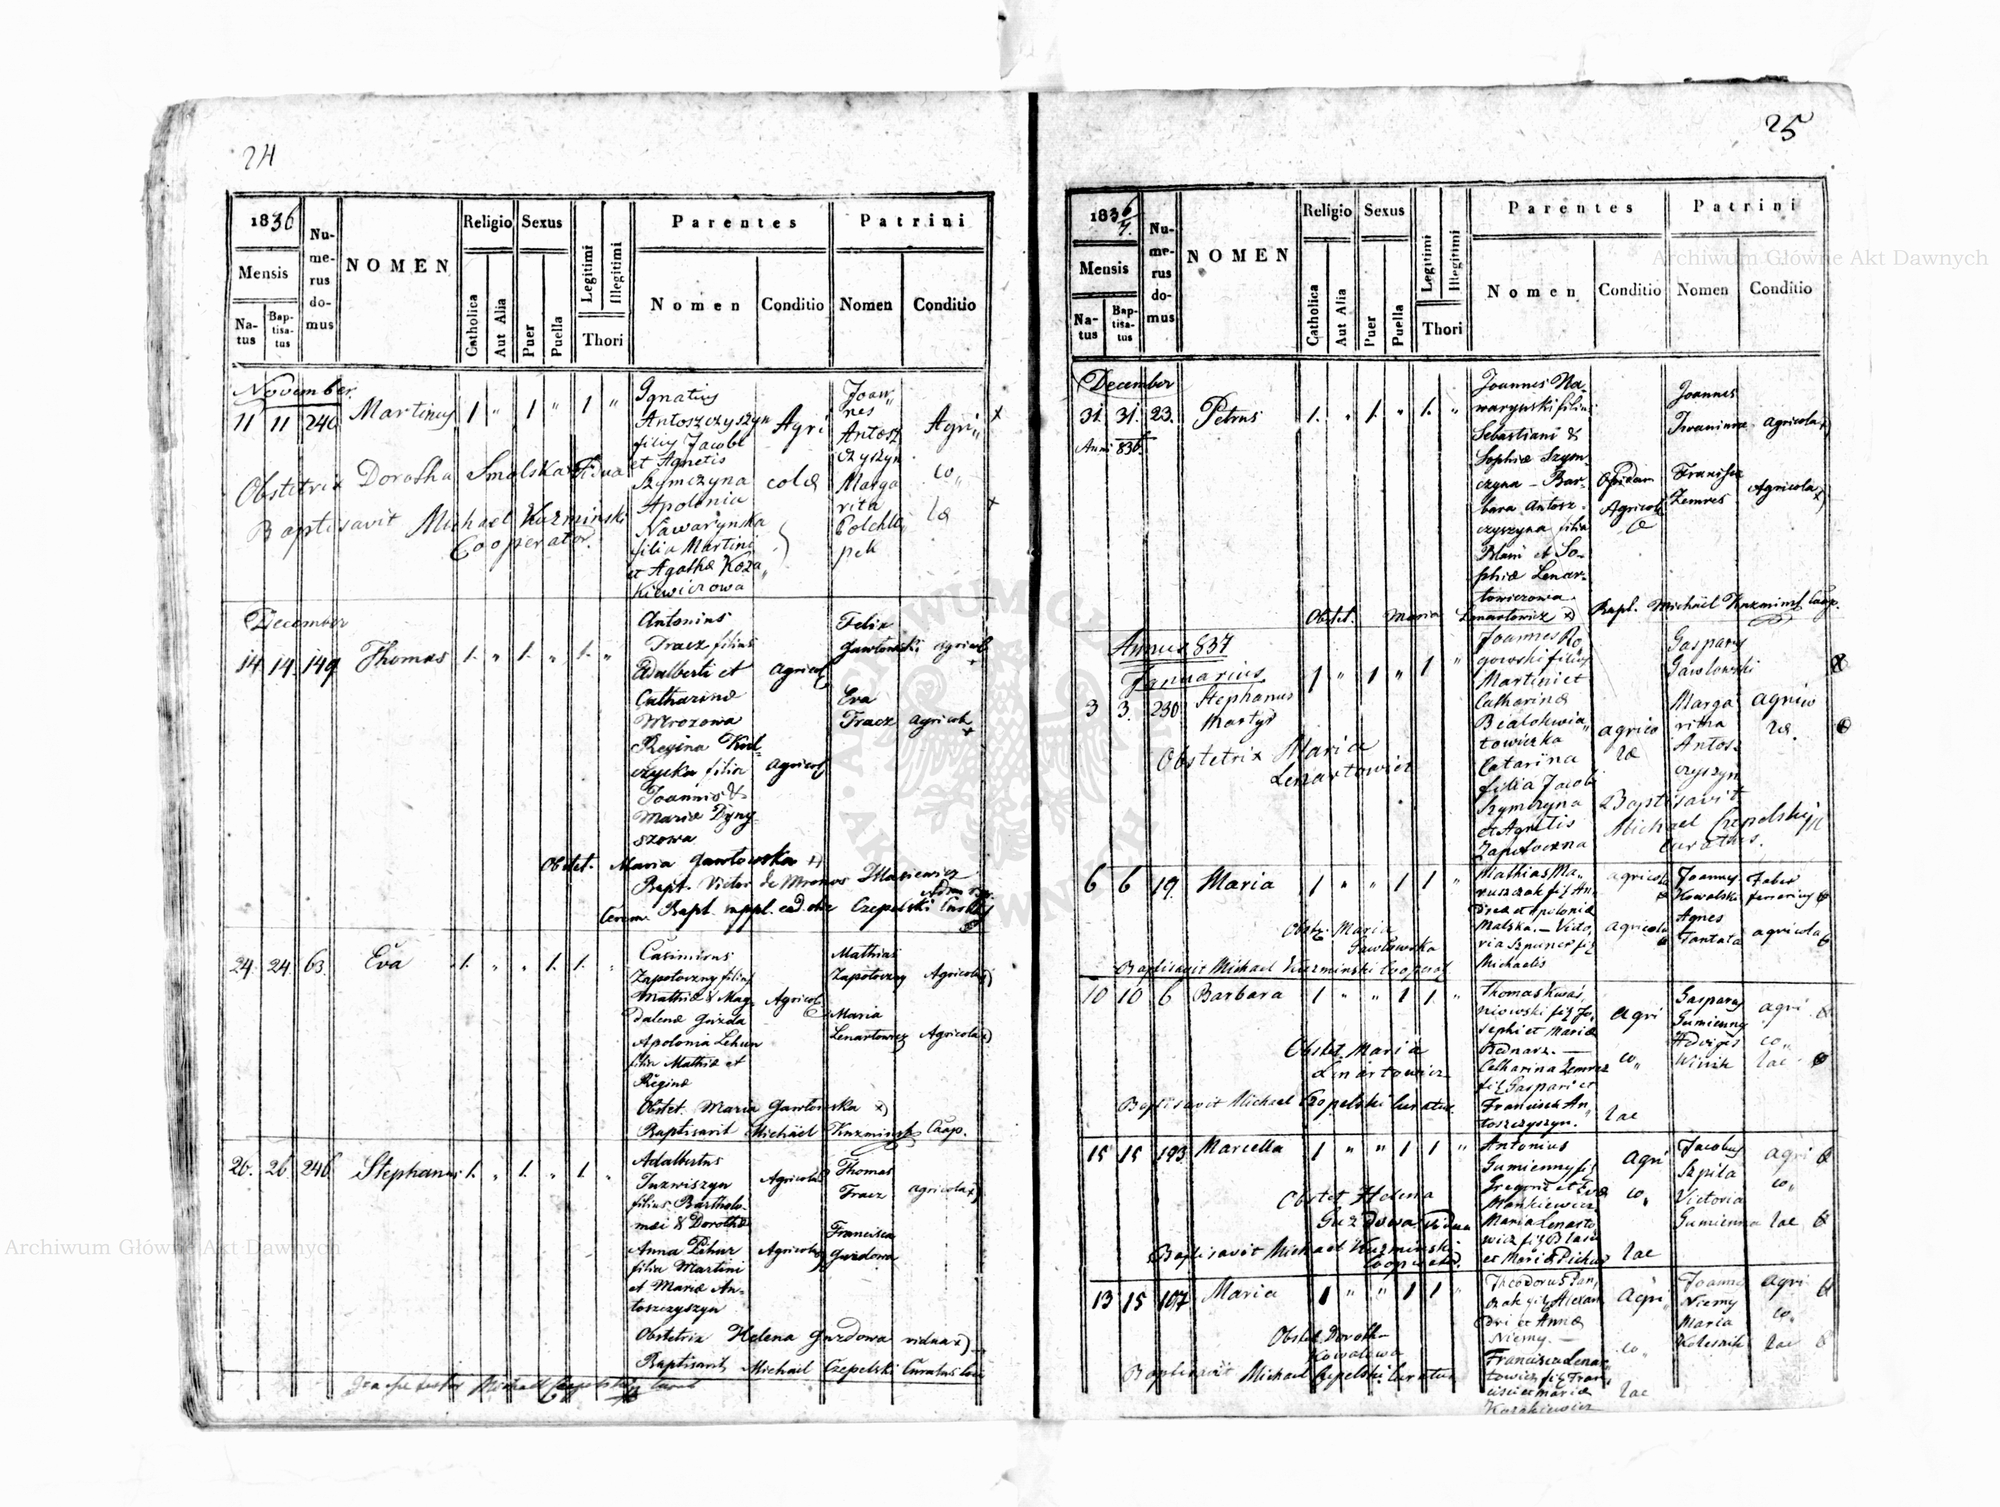 24
1836
Mensis
Na-
tus
Bap-
tisa-
tus
Nu-
me-
rus
do-
mus
NOMEN
Religio
Catholica
Aut Alia
Sexus
Puer
Puella
Legitimi
Illegitimi
Thori
Parentes
Nomen
Conditio
Patrini
Nomen
Conditio
November.
11 11 240 Martinus 1 " 1 " 1 "
Ignatius
Antoszczyszyn
filius Jacobi
et Agnetis
Szymczyna
Apolonia
Nawarynska
filia Martini
et Agatha Koza
kiewiczowa
Agri
colæ
Joan
nes
Antosz
czyszyn
Marga
rita
pek
Agri
co
læ
Obstetrix Dorotha Smolska Vidua
Baptisavit Michael Kuzminski
Cooperator.
December
14 14. 149 Thomas 1. " 1. " 1. "
Antonius
Tracz filius
Adalberti et
Catharinæ
Mrozowa
Regina Kul-
czycka filia
Joannis &
Mariæ Dyny-
szowa
Agricol
Agricol
Felix
Gawlowski agricol
Eva
Tracz agricol
Obstet. Maria Gawlowska
Bapt. Victor de Mronos
Cerem. Bapt. suppl. ead. die Czepelski
24. 24. 63. Eva 1. " " 1. 1. "
Casimirus
Zapotoczny filius
Mathiæ & Mag-
dalenæ Guzda
Apolonia Lehun
filia Mathiæ et
Reginæ
Agricol
Mathias
Zapotoczny Agricola
Maria
Lenartowicz Agricola
Obstet. Maria Gawlowska
Baptisavit Michäel Kuzminski Coop.
26. 26 246 Stephanus 1. " 1. " 1 "
Adalbertus
Juzwiszyn
filius Bartholo-
mæi & Dorothæ
Anna Lihur
filia Martini
et Mariæ An-
toszczyszyn
Agricola
Agricola
Thomas
Tracz agricola
Francisca
Guzdowa
Obstetrix Helena Guzdowa vidua
Baptisavit Michael Czepelski Curatus loci
25
1836/7.
Mensis
Na-
tus
Bap-
tisa-
tus
Nu-
me-
rus
do-
mus
NOMEN
Religio
Catholica
Aut Alia
Sexus
Puer
Puella
Legitimi
Illegitimi
Thori
Parentes
Nomen
Conditio
Patrini
Nomen
Conditio
December
31. 31. 23. Petrus 1. " 1. " 1. "
Anni 836.
Joannes Na-
warynski filius
Sebastiani &
Sophiæ Szym-
czyna - Bar-
bara Antosz-
czyszyna filia
Blasii et So-
phiæ Lenar-
towiczowa
Agricol
æ
Joannes
Agricola
Zemres Agricola
Obstet. Maria Lenartowicz Bapt. Michäel Kuzminski Coop.
Annus 837
Januarius
3 3. 230 Stephanus
Martyr
1 " 1 " 1 "
Joannes Ro
gowski filius
Martini et
Catharinæ
Bialokwia
towiczka
Catarina
filia Jacobi
Szymczyna
et Agnetis
Zapotoczna
agrico
læ
Gaspary
Gawlowski
Marga
ritha
Antos-
czyszyn
agrico
læ.
Obstetrix Maria
Lenartowicz
Baptisavit
Michael Czepelski
Curatus.
6 6 19. Maria 1 " " 1 1 "
Mathias Ma-
ruszczak fil An-
dreæ et Apoloniæ
Malska. - Victo-
ria Szpunce fil
Michaelis
agricola
agricola
Joannes
Kowalski
Agnes
Tantala
Faber
ferrarius
agricola
Obstz. Maria
Gawlowska
Baptisavit Michael Kuzminski Cooperat
10 10 6 Barbara 1 " " 1 1. "
Thomas Kwas,
niowski fil Jo,
sephi et Mariæ
Bednarz. -
Catharina Zemres
fil Gaspari et
Francisca An,
toszczyszyn.
agri
co
lae
Gaspary
Gumienny
Hedviges
Wiśnik
agri
co
lae
Obstet Maria
Lenartowicz
Baptisavit Michael Czepelski Curatus
15 15 193 Marcella 1 " " 1 1 "
Antonius
Gumienny fil
Gregorii et Evæ
Mankiewicz
Maria Lenarto
wicz fil Blasii
et Mariæ Dichur
Agri
co
lae
Jacobus
Szpila
Victoria
Gumienna
agri
co
lae
Obstet Helena
Guzdowa Vidua
Baptisavit Michael Kuzminski
Cooperator.
13 15 107 Maria 1 " " 1 1 "
Theodorus Pan,
czak fil Alexan
dri et Annæ
Niemy. -
Francisca Lenar
towicz fil Fran-
cisci et Mariæ
Kozakiewicz
Agri
co
lae
Joannes
Niemy
Maria
Kolesnik
agri
co
lae
Obstet Doroth-
Kowalowa
Baptisavit Michael Czepelski Curatus
Archiwum Główne Akt Dawnych
Archiwum Główne Akt Dawnych